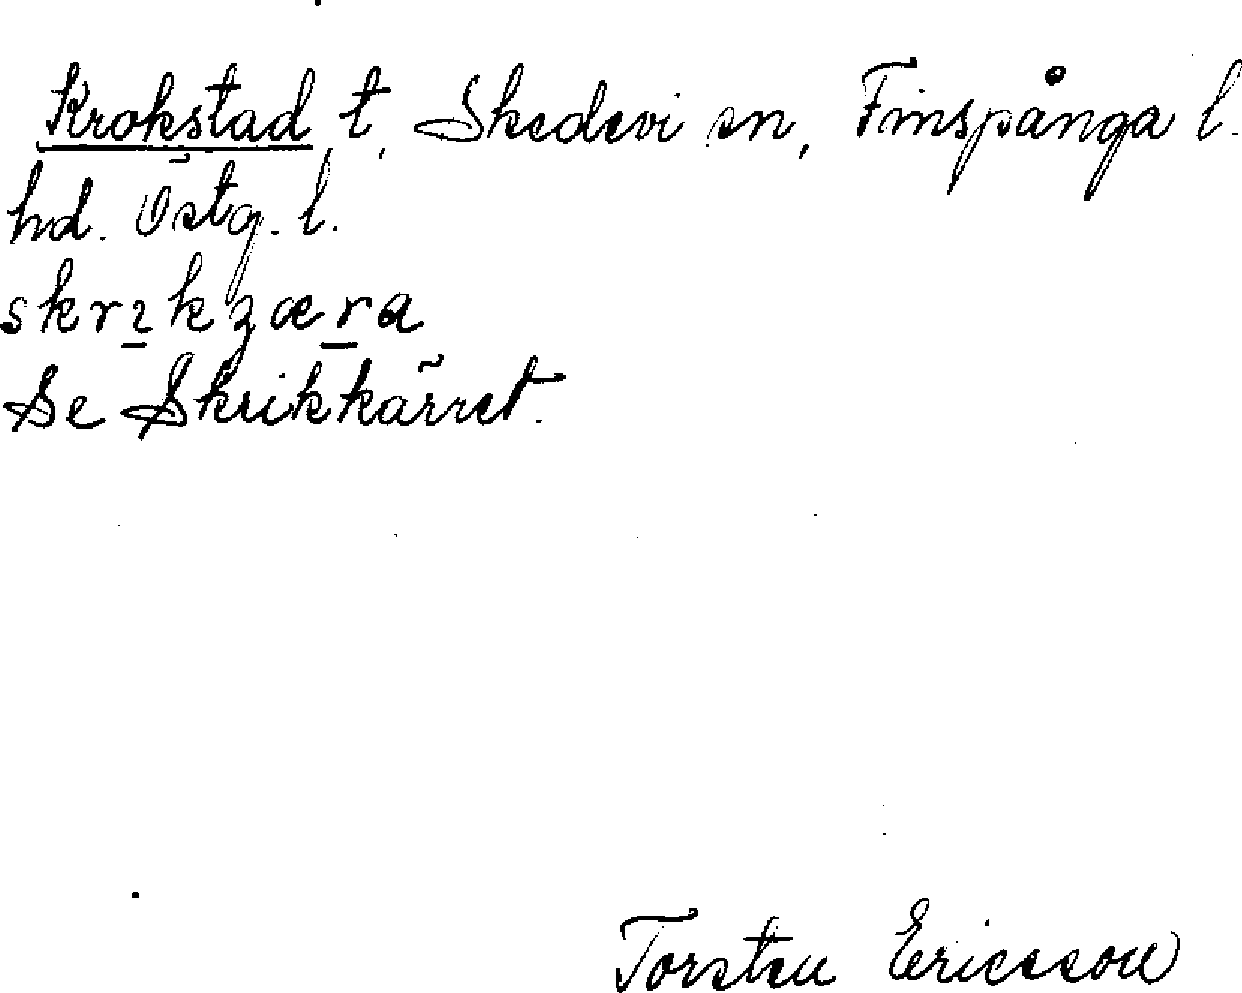 Krokstad t. Skedevi sn, Finspånga l.
hd. Östg. l.
skrıkʒæra
Se Skrikkärret.
Torsten Ericsson